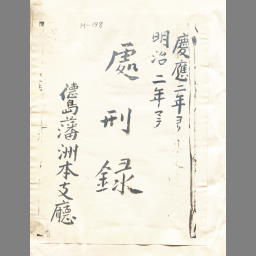 H-198
慶應二年ヨリ
明治二年マデ
處刑録
徳島藩洲本支廳